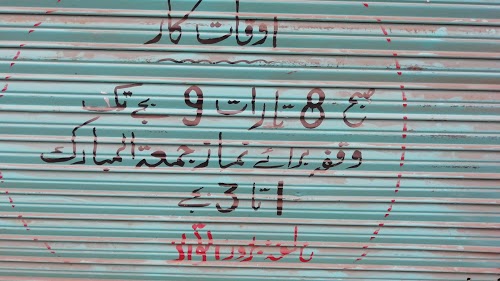 اوقات کار
صبح 8 تا رات 9 بجے تک
وقفہ برائے نماز جمعۃ المبارک
1 تا 3 بجے
ناغہ بروز اتوار